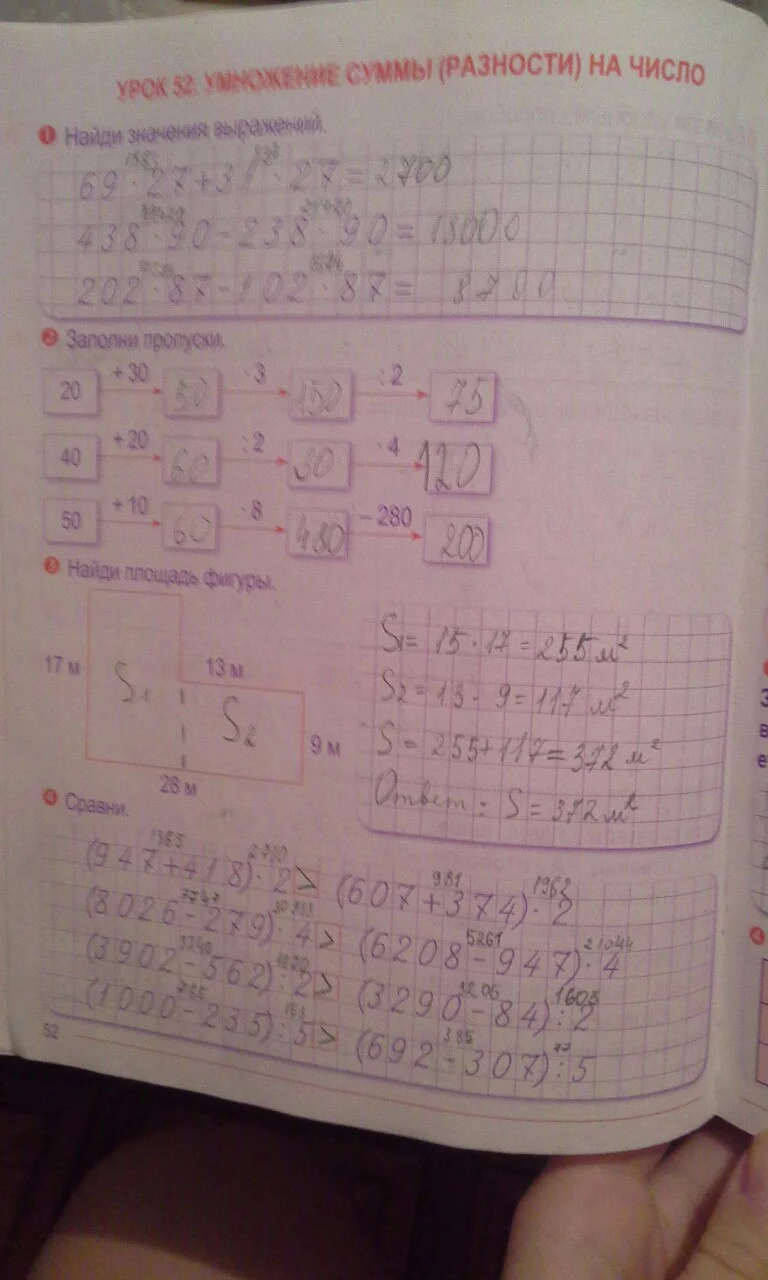 УРОК 52. УМНОЖЕНИЕ СУММЫ (РАЗНОСТИ) НА ЧИСЛО
1 Найди значения выражений.
69 · 27 + 31 · 27 = 2700
438 · 90 - 238 · 90 = 18000
202 · 87 - 102 · 87 = 8700
2 Заполни пропуски.
20 + 30 50 · 3 150 : 2 75
40 + 20 60 : 2 30 · 4 120
50 + 10 60 · 8 480 - 280 200
3 Найди площадь фигуры.
17 м S1 13 м S2 9 м 28 м
S1 = 15 · 17 = 255 м²
S2 = 13 · 9 = 117 м²
S = 255 + 117 = 372 м²
Ответ: S = 372 м²
4 Сравни.
1365 981 1962
(947 + 418) · 2 > (607 + 374) · 2
7747 5261 21044
(8026 - 279) · 4 > (6208 - 947) · 4
3340 1670 3206 1603
(3902 - 562) : 2 > (3290 - 84) : 2
765 153 385 77
(1000 - 235) : 5 > (692 - 307) : 5
52